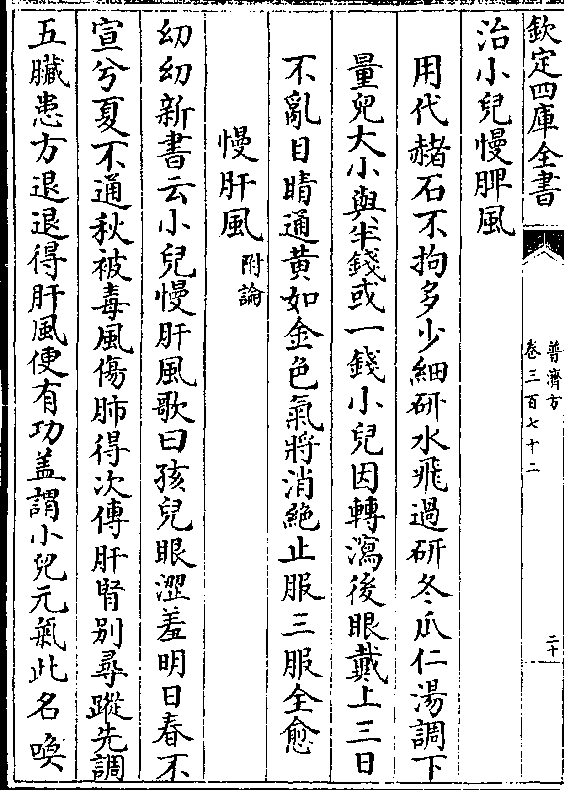 欽定四庫全書
普濟方
卷三百七十二
二十
治小兒慢脾風
用代赭石不拘多少細研水飛過研冬瓜仁湯調下
量兒大小與半錢或一錢小兒因轉瀉後眼戴上三日
不亂目睛通黃如金色氣將消絶止服三服全愈
慢肝風附論
幼幼新書云小兒慢肝風歌曰孩兒眼澀羞明日春不
宣兮夏不通秋被毒風傷肺得次傳肝腎别尋蹤先調
五臟患方退退得肝風便有功盖謂小兒元氣此名喚